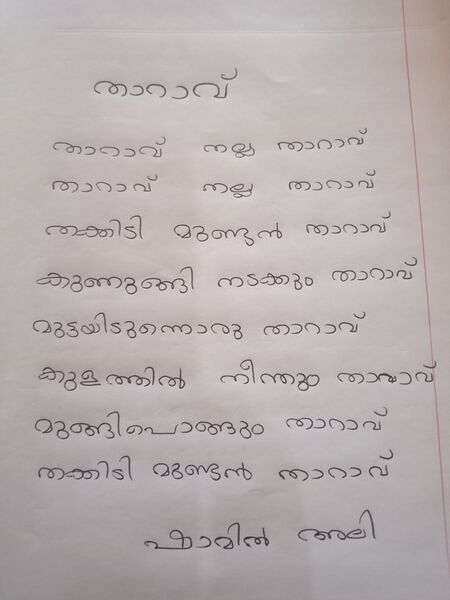 താറാവ്
താറാവ് നല്ല താറാവ്
താറാവ് നല്ല താറാവ്
തക്കിടി മുണ്ടൻ താറാവ്
കുണുങ്ങി നടക്കും താറാവ്
മുട്ടയിടുന്നൊരു താറാവ്
കുളത്തിൽ നീന്തും താറാവ്
മുങ്ങിപൊങ്ങും താറാവ്
തക്കിടി മുണ്ടൻ താറാവ്
ഷാമിൽ അലി